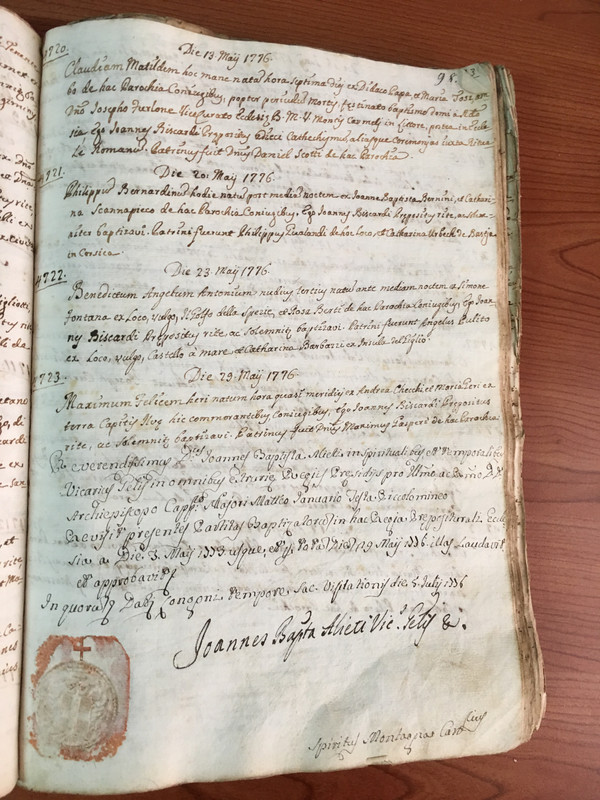 4720.
Die 13. Maij 1776.
98.
Claudiam Matildem hoc mane natam hora septima diei ex Didaco Papa, et Maria
bo de hac Parochia Coniugibus, propter periculum mortis festinato baptisme
Dño Josepho Furlone Vicecurato Ecclesiæ B. M. V. Montis Carmeli in
sia Ego Joannes Biscardi Prepositus Cathechismo, aliisque ceremoniis iuxta Ritua
le Romanum. Patrinus fuit Dñus Daniel Scotti de hac Parochia.
4721.
Die 20. Maij 1776.
Philippum Bernardinum hodie natum post mediam noctem ex Joanne Baptista Bernini, et Cathari
na Scannapieco de hac Parochia Coniugibus, Ego Joannes Biscardi Prepositus rite, ac solem-
niter baptizavi. Patrini fuerunt Philippus Gualandi de hoc Loco, et Catharina Urbech de Bastia
in Corsica.
4722.
Die 23. Maij 1776.
Benedictum Angelum Antonium nudius tertius natum ante mediam noctem a Simone
Fontana ex Loco, vulgo, Il Golfo della Spezie, et Rosa Berti de hac Parochia Coniugibus, Ego Joan
nes Biscardi Prepositus rite ac solemniter baptizavi. Patrini fuerunt Angelus Pulito
ex Loco, vulgo, Castello à mare et Catharina Barbazzi ex Insula del Giglio.
4723.
Die 29. Maij 1776.
Maximum Felicem heri natum hora quasi meridiei ex Andrea Checchi, et Maria Pieri ex
terra Capitis hic commorantibus Coniugibus, Ego Joannes Biscardi Prepositus
rite, ac solemniter baptizavi. Patrinus fuit Dñus Maximus Gasperi de hac Parochia
Reverendissimus Dñs Joannes Baptista Alieti in spiritualibus et temporalibus
Vicarius Gñlis in omnibus Etrurie Regiis Presidiis pro Illmo ac Rmo D. D.
Archiepiskopo Capp. Majori Mattheo Januario Testa Piccolomineo
Revisit presentes Partitas Baptizatorum in hac Regia Prepositurali Eccle
sia a Die 3. Maij 1773 usque, et per totam Diem 29 Maij 1776. illas laudavit
et approbavit
In quorum Dat. Longoni tempore Sac. Visitationis die 5. July 1776
Joannes Bapta Alieti Vic. Gñlis &.
Spiritus Montagna Canrius